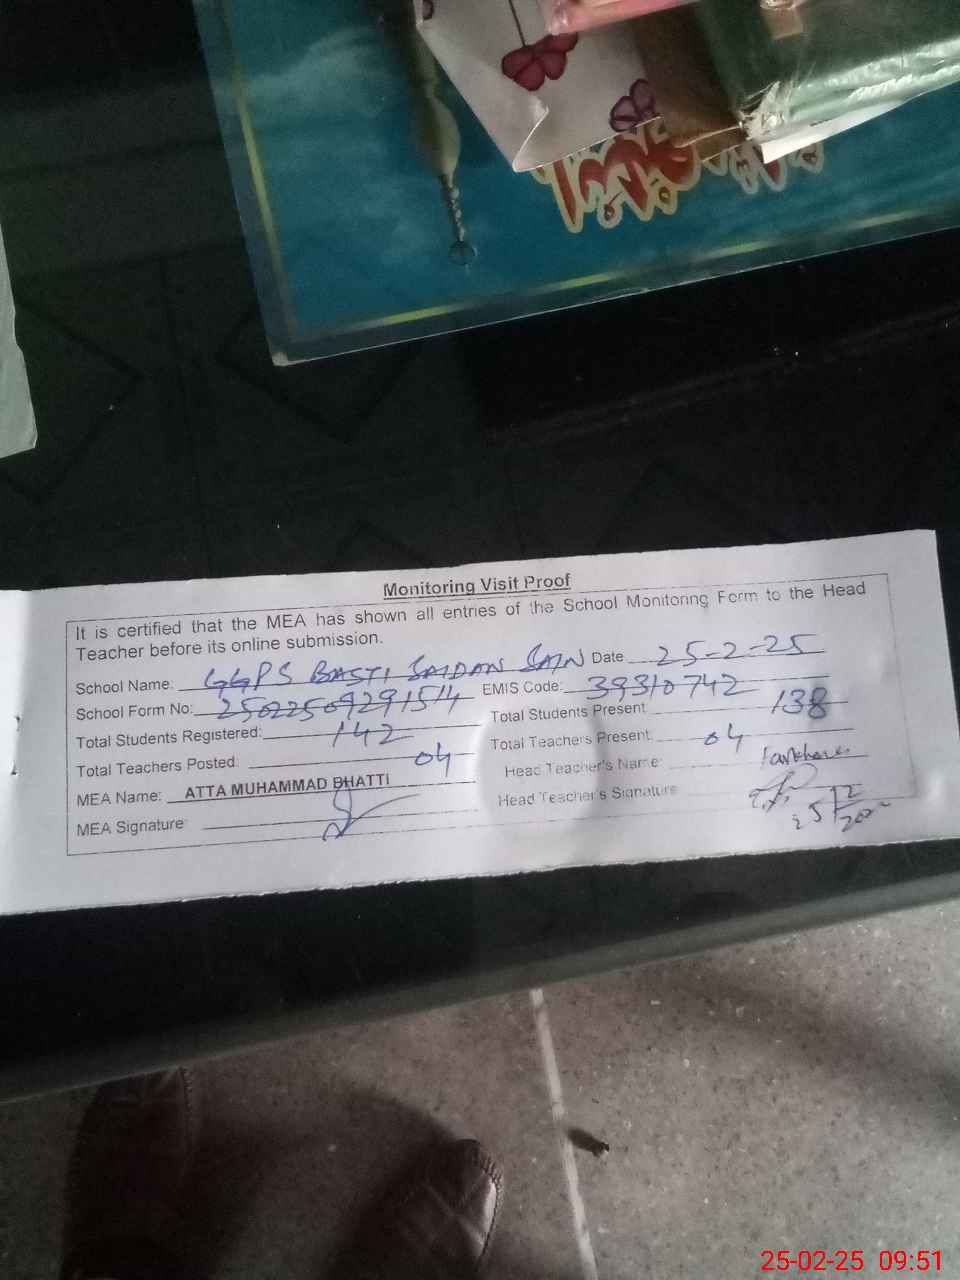 Monitoring Visit Proof
It is certified that the MEA has shown all entries of the School Monitoring Form to the Head
Teacher before its online submission.
School Name: GGPS BASTI SAIDAN SAIN Date 25-2-25
School Form No: 25022509291514 EMIS Code: 39310742
Total Students Registered: 142 Total Students Present 138
Total Teachers Posted 04 Total Teachers Present: 04
MEA Name: ATTA MUHAMMAD BHATTI Head Teacher's Name:
MEA Signature: Head Teacher's Signature
25-02-25 09:51